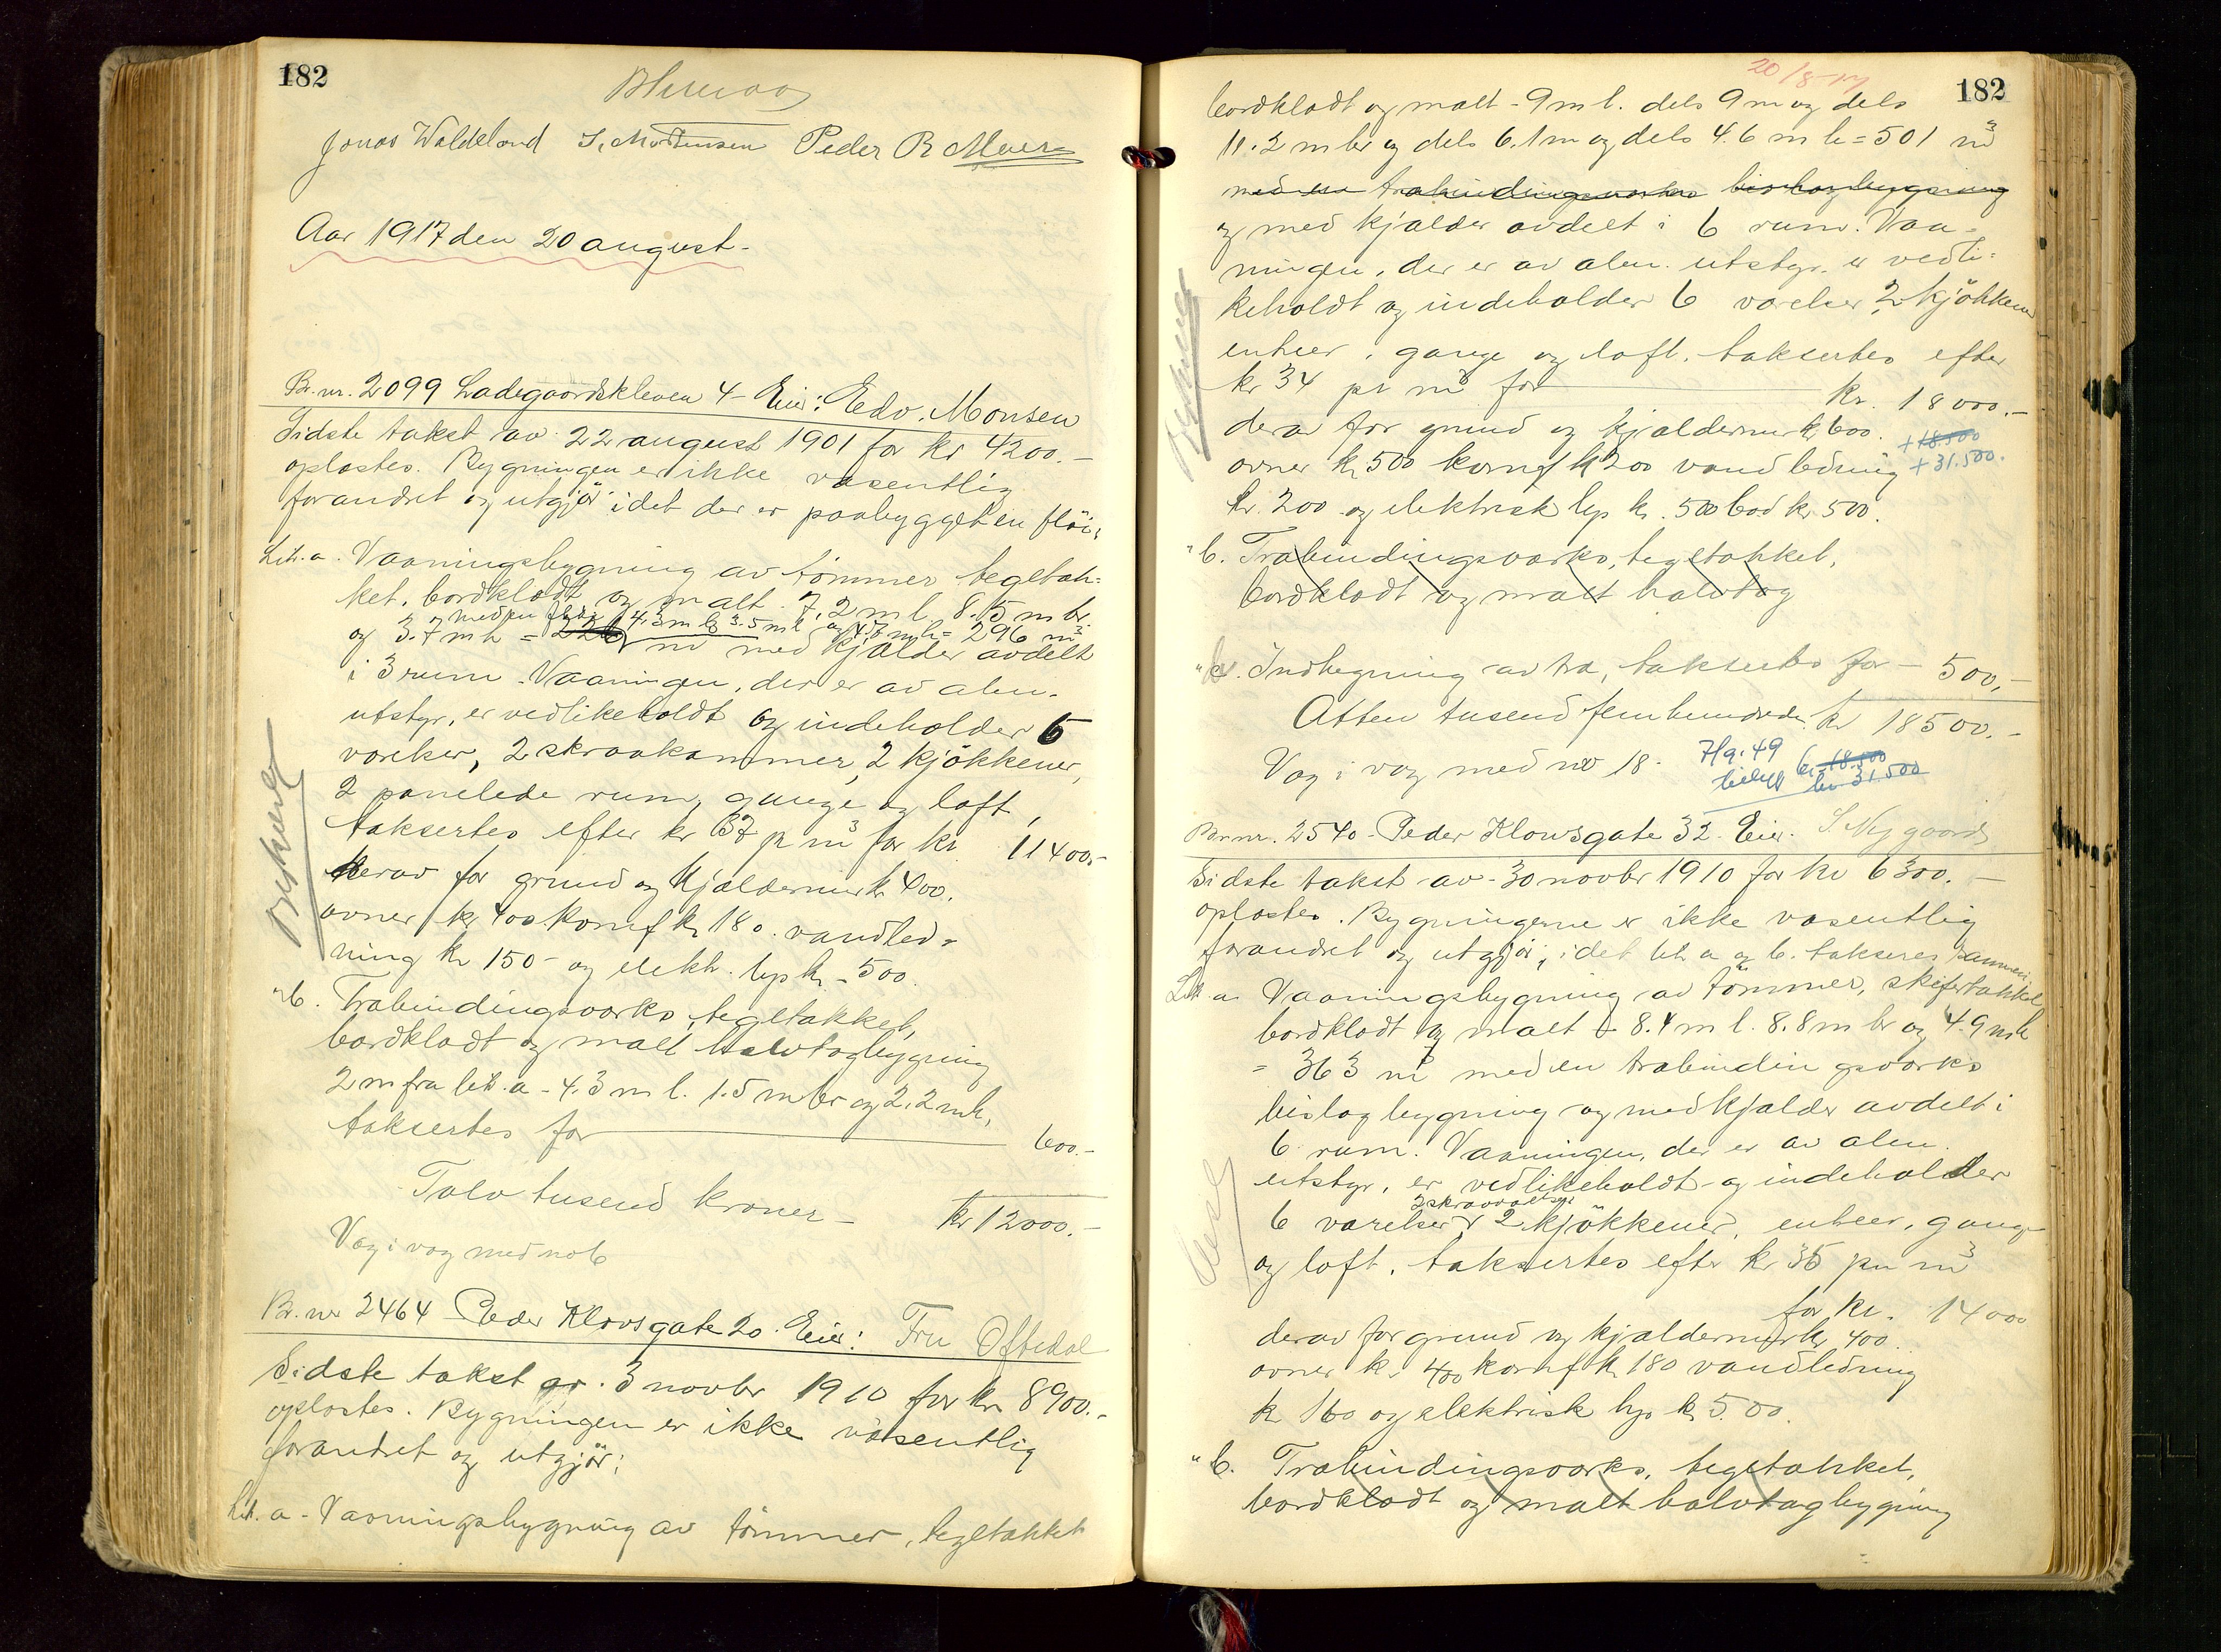 182
Jonas Waldeland S. Mortensen Peder R Meyer
Aar 1917 den 20 august.
Br. nr. 2099 Ladegaardskleven 4 - Eier: Edv. Monsen
Sidste takst av 22 august 1901 for kr 4200.-
oplæstes. Bygningen er ikke væsentlig
forandret og utgjør: idet der er paabygget en fløi;
Litr. a. Vaaningsbygning av tømmer tegltæk-
ket, bordklædt og malt - 7.2 m l. 8.5 m br.
med en fløi 4.3 m l 3.5 m b og 4.7 m h = 296 m³
og 3.7 m h = 226 m³ med kjælder avdelt
i 3 rum. Vaaningen, der er av alm.
utstyr, er vedlikeholdt og indeholder 6
værelser, 2 skraakammer, 2 kjøkkener,
2 panelede rum, gange og loft,
taksertes efter kr 37 p m³ for kr 11400.-
derav for grund og kjældermur kr 400.
ovner kr 400 komf kr 180. vandled-
ning kr 150 - og elektr. lys kr - 500.
" b. Træbindingsværks, tegltækket,
bordklædt og malt halvtagbygning
2 m fra litr. a - 4.3 m l. 1.5 m br og 2.2 m h,
taksertes for 600.-
Tolv tusend kroner - kr 12000.-
Væg i væg med no 6
Beskrevet
Br. nr 2464 Peder Klowsgate 20. Eier: Fru Oftedal
Sidste takst av. 3 novbr 1910 for kr 8900.-
oplæstes. Bygningen er ikke væsentlig
forandret og utgjør;
Litr. a - Vaaningsbygning av tømmer, tegltækket
20/8-17
182
bordklædt og malt - 9 m l. dels 9 m og dels
11.2 m br og dels 6.1 m og dels 4.6 m h = 501 m³
med en træbindingsværks bislagbygning
og med kjælder avdelt i 6 rum. Vaa-
ningen, der er av alm. utstyr, er vedli-
keholdt og indeholder 6 værelser, 2 kjøkkener
entreer, gange og loft, taksertes efter
kr 34 pr m³ for kr. 18000.-
derav for grund og kjældermur kr 600.
+ 18.500
ovner kr 500 komf kr 200 vandledning
+ 31.500.
kr. 200 og elektrisk lys kr. 500 bod kr 500.
" b. Træbindingsværks, tegltækket,
bordklædt og malt halvtag
" b. Indhegning av træ, taksertes for - 500.-
Atten tusend femhundrede. kr 18500.-
Væg i væg med no 18.
7/9: 49 kr. 18.500
kr 31.500
Br. nr. 2540 - Peder Klowsgate 32. Eier. S. Nygaard
Sidste takst av - 30 novbr 1910 for kr 6300.-
oplæstes. Bygningerne er ikke væsentlig
forandret og utgjør; idet litr a og b. takseres sammen
Litr. a Vaaningsbygning av tømmer, skifertækket
bordklædt og malt - 8.4 m l. 8.8 m br og 4.9 m h
= 363 m³ med en træbindingsværks
bislagbygning og med kjælder avdelt i
6 rum. Vaaningen, der er av alm.
utstyr, er vedlikeholdt og indeholder
6 værelser, 2 kjøkkener, entreer, gange
og loft, taksertes efter kr 35 pr m³
for kr. 14000
derav for grund og kjældermur kr 400.
ovner kr 400 komf kr 180 vandledning
kr 160 og elektrisk lys kr 500.
" b. Træbindingsværks, tegltækket,
bordklædt og malt halvtagbygning